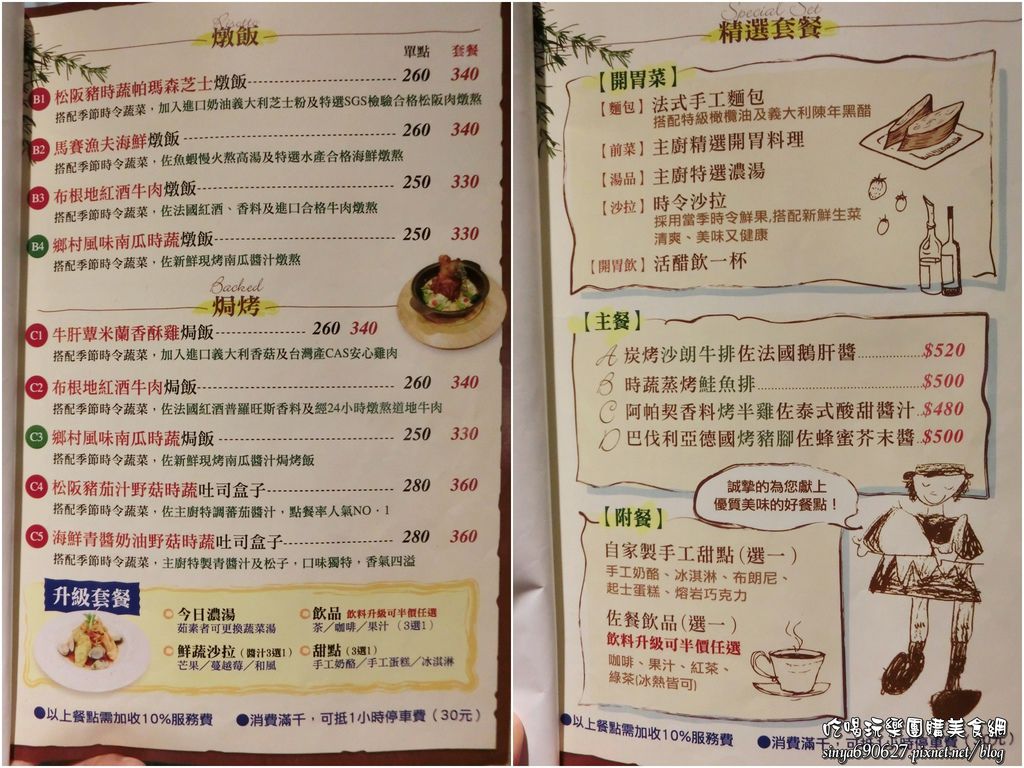 Risotto
燉飯
單點 套餐
B1 松阪豬時蔬帕瑪森芝士燉飯 260 340
搭配季節時令蔬菜，加入進口奶油義大利芝士粉及特選SGS檢驗合格松阪肉燉熬
B2 馬賽漁夫海鮮燉飯 260 340
搭配季節時令蔬菜，佐魚蝦慢火熬高湯及特選水產合格海鮮燉熬
B3 布根地紅酒牛肉燉飯 250 330
搭配季節時令蔬菜，佐法國紅酒、香料及進口合格牛肉燉熬
B4 鄉村風味南瓜時蔬燉飯 250 330
搭配季節時令蔬菜，佐新鮮現烤南瓜醬汁燉熬
Backed
焗烤
C1 牛肝蕈米蘭香酥雞焗飯 260 340
搭配季節時令蔬菜，加入進口義大利香菇及台灣產CAS安心雞肉
C2 布根地紅酒牛肉焗飯 260 340
搭配季節時令蔬菜，佐法國紅酒普羅旺斯香料及經24小時燉熬道地牛肉
C3 鄉村風味南瓜時蔬焗飯 250 330
搭配季節時令蔬菜，佐新鮮現烤南瓜醬汁焗烤飯
C4 松阪豬茄汁野菇時蔬吐司盒子 280 360
搭配季節時令蔬菜，佐主廚特調蕃茄醬汁，點餐率人氣NO．1
C5 海鮮青醬奶油野菇時蔬吐司盒子 280 360
搭配季節時令蔬菜，主廚特製青醬汁及松子，口味獨特，香氣四溢
升級套餐
今日濃湯
茹素者可更換蔬菜湯
飲品 飲料升級可半價任選
茶／咖啡／果汁（3選1）
鮮蔬沙拉（醬汁3選1）
芒果／蔓越莓／和風
甜點（3選1）
手工奶酪／手工蛋糕／冰淇淋
●以上餐點需加收10%服務費 ●消費滿千，可抵1小時停車費（30元）
Special Set
精選套餐
【開胃菜】
【麵包】法式手工麵包
搭配特級橄欖油及義大利陳年黑醋
【前菜】主廚精選開胃料理
【湯品】主廚特選濃湯
【沙拉】時令沙拉
採用當季時令鮮果,搭配新鮮生菜
清爽、美味又健康
【開胃飲】活醋飲一杯
【主餐】
A 炭烤沙朗牛排佐法國鵝肝醬 $520
B 時蔬蒸烤鮭魚排 $500
C 阿帕契香料烤半雞佐泰式酸甜醬汁 $480
D 巴伐利亞德國烤豬腳佐蜂蜜芥末醬 $500
誠摯的為您獻上
優質美味的好餐點！
【附餐】
自家製手工甜點(選一)
手工奶酪、冰淇淋、布朗尼、
起士蛋糕、熔岩巧克力
佐餐飲品(選一)
飲料升級可半價任選
咖啡、果汁、紅茶、
綠茶(冰熱皆可)
●以上餐點需加收10%服務費 ●消費滿千，可抵1小時停車費
吃喝玩樂團購美食網
sinya690627.pixnet.net/blog